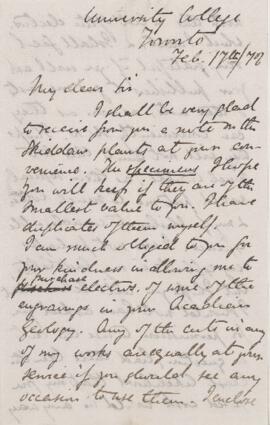 University College
Toronto
Feb. 17th/78
My dear Sir
I shall be very glad
to receive from you a note on the
Skiddaw plants at your con-
venience. The specimens I hope
you will keep if they are of the
smallest value to you. I have
duplicates of them myself.
I am much obliged to you for
your kindness in allowing me to
purchase electros. of some of the
engravings in your Acadian
Geology. Any of the cuts in any
of my works are equally at your
service if you should see any
occasion to use them. I enclose